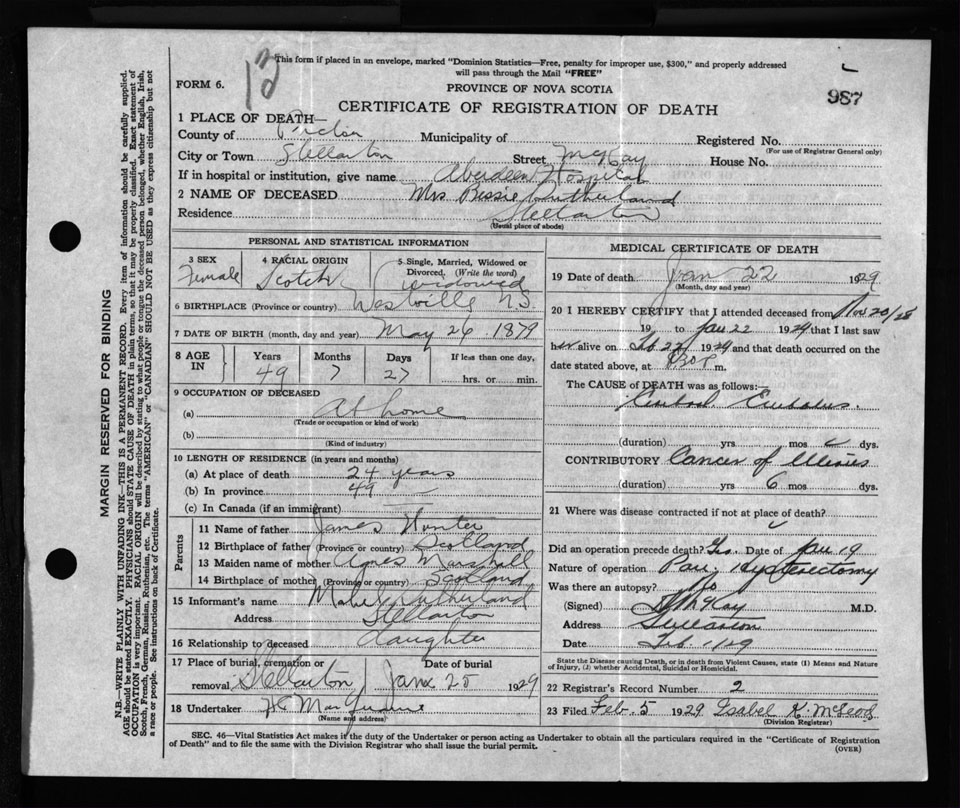 13
This form if placed in an envelope, marked "Dominion Statistics—Free, penalty for improper use, $300," and properly addressed
will pass through the Mail "FREE"
FORM 6.
PROVINCE OF NOVA SCOTIA
987
CERTIFICATE OF REGISTRATION OF DEATH
1 PLACE OF DEATH—
County of Pictou Municipality of Registered No.
(For use of Registrar General only)
City or Town Stellarton Street McKay House No.
If in hospital or institution, give name Aberdeen Hospital
2 NAME OF DECEASED Mrs Bessie Sutherland
Residence Stellarton
(Usual place of abode)
PERSONAL AND STATISTICAL INFORMATION
3 SEX Female
4 RACIAL ORIGIN Scotch
5 Single, Married, Widowed or Divorced. (Write the word) Widowed
6 BIRTHPLACE (Province or country) Westville N.S
7 DATE OF BIRTH (month, day and year) May 26 1879
8 AGE IN Years 49 Months 7 Days 27 If less than one day, hrs. or min.
9 OCCUPATION OF DECEASED
(a) At home
(Trade or occupation or kind of work)
(b)
(Kind of industry)
10 LENGTH OF RESIDENCE (in years and months)
(a) At place of death 24 years
(b) In province 49
(c) In Canada (if an immigrant)
Parents
11 Name of father James Hunter
12 Birthplace of father (Province or country) Scotland
13 Maiden name of mother Agnes Marshall
14 Birthplace of mother (Province or country) Scotland
15 Informant's name Mabel Sutherland
Address Stellarton
16 Relationship to deceased daughter
17 Place of burial, cremation or removal Stellarton Date of burial Jan 25 1929
18 Undertaker
(Name and address)
MEDICAL CERTIFICATE OF DEATH
19 Date of death Jan 22 1929
(Month, day and year)
20 I HEREBY CERTIFY that I attended deceased from Nov 20/28
19 to Jan 22 1929 that I last saw
her alive on 22 1929 and that death occurred on the
date stated above, at m.
The CAUSE of DEATH was as follows:—
Cerebral Embolus.
(duration) yrs mos dys.
CONTRIBUTORY Cancer of Uterus
(duration) yrs 6 mos dys.
21 Where was disease contracted if not at place of death?
Did an operation precede death? Yes. Date of Jan 19
Nature of operation Pan. Hysterectomy
Was there an autopsy? No
(Signed) McKay M.D.
Address Stellarton
Date Feb. 1/19
State the Disease causing Death, or in death from Violent Causes, state (1) Means and Nature
of Injury, (2) whether Accidental, Suicidal or Homicidal.
22 Registrar's Record Number 2
23 Filed Feb. 5 1929 Isabel K. McLeod
(Division Registrar)
SEC. 46—Vital Statistics Act makes it the duty of the Undertaker or person acting as Undertaker to obtain all the particulars required in the "Certificate of Registration
of Death" and to file the same with the Division Registrar who shall issue the burial permit.
(OVER)
MARGIN RESERVED FOR BINDING
N.B.—WRITE PLAINLY WITH UNFADING INK—THIS IS A PERMANENT RECORD. Every item of information should be carefully supplied.
AGE should be stated EXACTLY. PHYSICIANS should STATE CAUSE OF DEATH in plain terms, so that it may be properly classified. Exact statement of
OCCUPATION is very important. RACIAL ORIGIN will be described by stating to what people or tongue the deceased person belonged, whether English, Irish,
Scotch, French, German, Russian, Ruthenian, etc. The terms "AMERICAN" or "CANADIAN" SHOULD NOT BE USED as they express citizenship but not
a race or people. See instructions on back of Certificate.